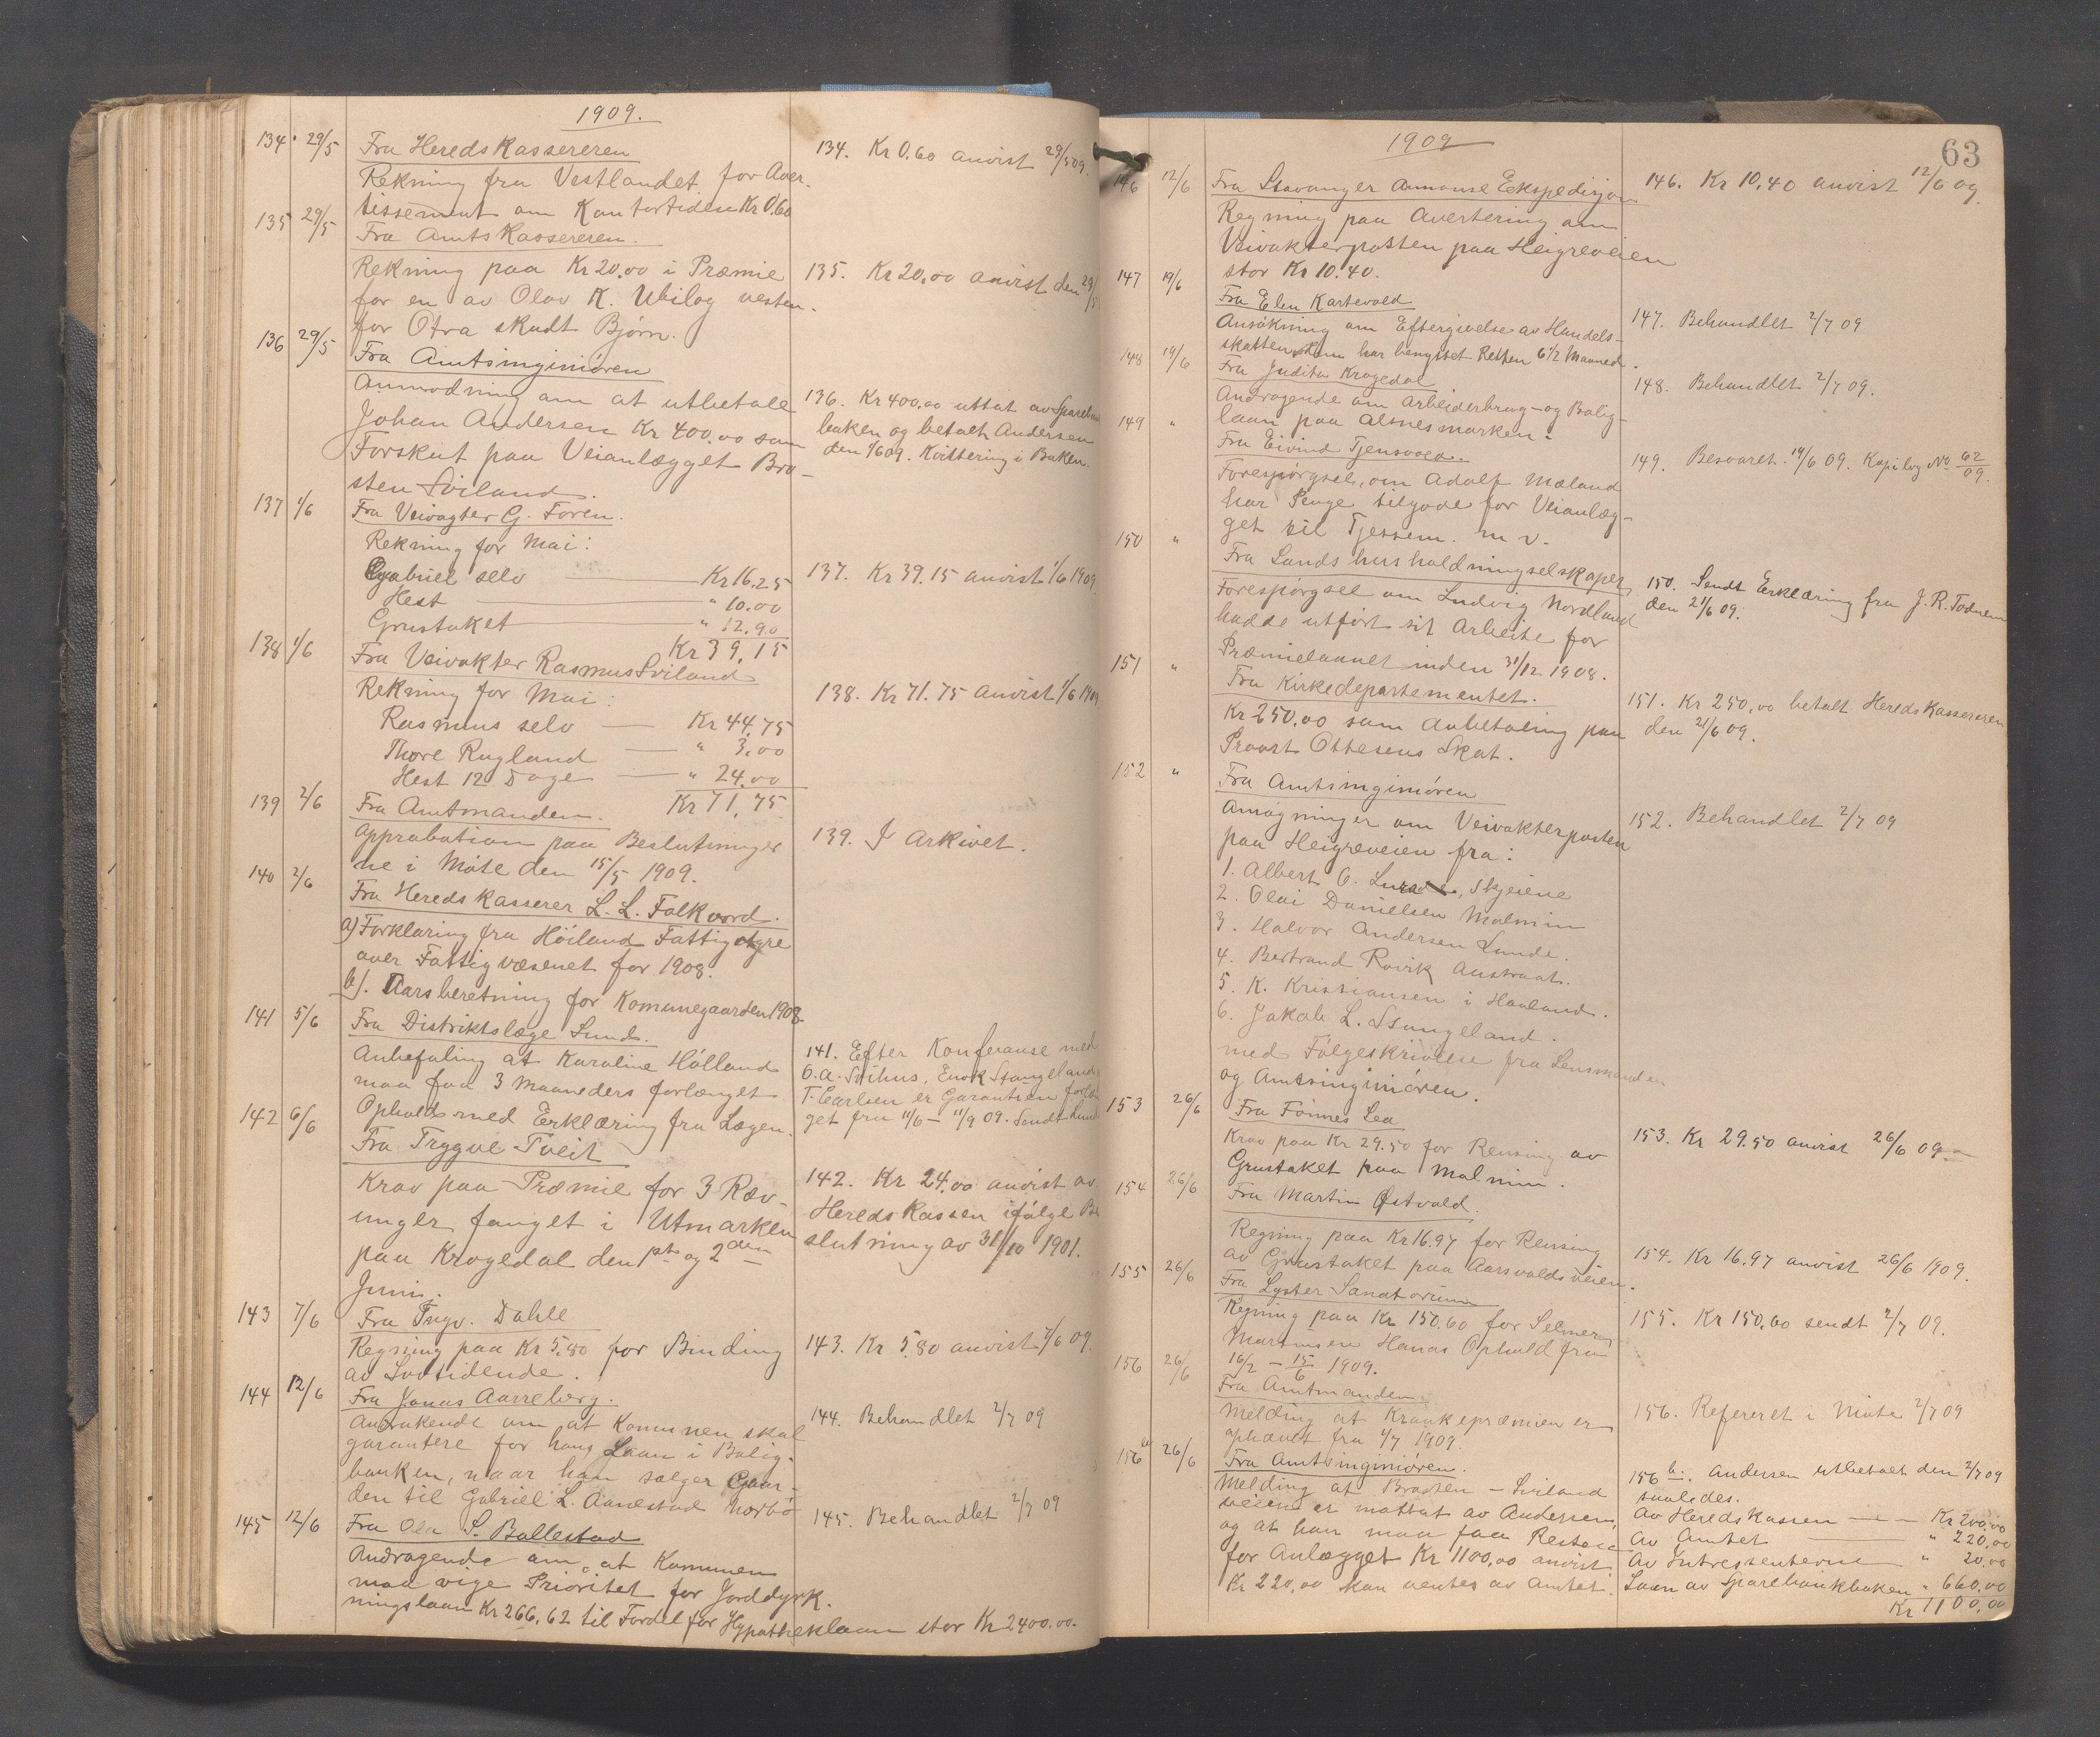 1909.
134. 29/5 Fra Heredskassereren
Rekning fra Vestlandet for Aver-
tissement om Kontortiden Kr 0.60
134. Kr 0.60 anvist 29/5 09.
135 29/5 Fra Amtskassereren.
Rekning paa Kr 20.00 i Præmie
for en av Olav K. Ubilog vesten-
for Otra skudt Bjørn.
135. Kr 20.00 anvist den 29/5
136 29/5 Fra Amtsinginiören
Anmodning om at utbetale
Johan Andersen Kr 400.00 som
Forskut paa Veianlægget Bra-
sten Sviland.
136. Kr 400.00 uttat av Spareban
baken og betalt Andersen
den 1/6 09. Kvittering i Baken.
137 1/6 Fra Veivagter G. Foren.
Rekning for Mai:
Gabriel selv Kr 16.25
Hest " 10.00
Grustaket " 12.90
Kr 39.15
137. Kr 39.15 anvist 1/6 1909
138 1/6 Fra Veivakter Rasmus Sviland
Rekning for Mai:
Rasmus selv Kr 44.75
Thore Rugland " 3.00
Hest 12 Dage " 24.00
Kr 71.75
138. Kr 71.75 anvist 1/6 1909
139 2/6 Fra Amtmanden.
Approbation paa Beslutninger
ne i Möte den 15/5 1909.
139. I Arkivet.
140 2/6 Fra Heredskasserer L. L. Folkvord.
a) Forklaring fra Höiland Fattigstyre
over Fattigvæsenet for 1908.
b). Aarsberetning for Komunegaarden 1908
141 5/6 Fra Distriktslæge Lund.
Anbefaling at Karoline Hölland
maa faa 3 Maaneders forlænget
Ophold med Erklæring fra Lægen.
141. Efter Konferanse med
O. A. Svihus, Enok Stangeland
T. Carlsen er Garantien forlæn
get fra 11/6 – 11/9 09. Sendt Lund
142 6/6 Fra Trygve Tveit
Krav paa Præmie for 3 Ræv-
unger fanget i Utmarken
paa Krogedal den 1ste og 2den
Juni.
142. Kr 24.00 anvist av
Heredskassen ifölge Be
slutning av 31/10 1901.
143 7/6 Fra Ingv. Dahle
Regning paa Kr 5.80 for Binding
av Lovtidende.
143. Kr 5.80 anvist 7/6 09
144 12/6 Fra Jonas Aarreberg.
Andrakende om at Komunen skal
garantere for hans Laan i Bolig-
banken, naar han sælger Gaar-
den til Gabriel L. Aanestad Norbö
144. Behandlet 2/7 09
145 12/6 Fra Ola S. Ballestad
Andragende om at Komunen
maa vige Prioritet for Jorddyrk-
ningslaan Kr 266.62 til Fordel for Hypotheklaan stor Kr 2400.00.
145. Behandlet 2/7 09
1909
63
146 12/6 Fra Stavanger Annonse Ekspedisjon
Regning paa Avertering om
Veivakterposten paa Heigreveien
stor Kr 10.40.
146. Kr 10.40 anvist 12/6 09
147 19/6 Fra Elen Kartevold
Ansökning om Eftergivelse av Handels-
skatten som har benyttet Retten 6 1/2 Maaned.
147. Behandlet 2/7 09
148 19/6 Fra Judita Krogedal
Andragende om Arbeiderbrug- og Bolig-
laan paa Alsnesmarken.
148. Behandlet 2/7 09.
149 " Fra Eivind Tjensvold.
Forespörgsel, om Adolf Mæland
har Penge tilgode for Veianlæg-
get til Tjessem. m v.
149. Besvaret. 19/6 09. Kopibog No 62/09.
150 " Fra Landshusholdningselskapet
Forespörgsel om Ludvig Nordland
hadde utfört sit Arbeite for
Præmielaanet inden 31/12 1908.
150. Sendt Erklæring fra J. R. Todnem
den 21/6 09.
151 " Fra Kirkedepartementet.
Kr 250.00 som Avbetaling paa
Provst Ottesens Skat.
151. Kr 250.00 betalt Heredskassereren
den 21/6 09.
152 " Fra Amtsinginiören
Ansøgninger om Veivakterposten
paa Heigreveien fra:
1. Albert O. Lura, Skjeiene
2. Olai Danielsen Malmin
3. Halvor Andersen Lunde.
4. Bertrand Rovik Austraat.
5. K. Kristiansen i Haaland.
6. Jakob L. Stangeland.
med Fölgeskrivelse fra Lensmanden
og Amtsinginiören.
152. Behandlet 2/7 09
153 26/6 Fra Tönnes Lea
Krav paa Kr 29.50 for Rensing av
Grustaket paa Malmin.
153. Kr 29.50 anvist 26/6 09
154 26/6 Fra Martin Østvold.
Regning paa Kr 16.97 for Rensing
av Grustaket paa Aarsvoldsveien.
154. Kr 16.97 anvist 26/6 1909.
155 26/6 Fra Lyster Sanatorium
Regning paa Kr 150.60 for Selmer
Martinsen Hanas Ophold fra
16/2 – 15/6 1909.
155. Kr 150.60 sendt 2/7 09.
156 26/6 Fra Amtmanden
Melding at Kraakepræmien er
ophævet fra 1/7 1909.
156. Refereret i Möte 2/7 09
156 26/6 Fra Amtsinginiören.
Melding at Brasten – Sviland
veien er mottat av Andersen,
og at han maa faa Resten
for Anlægget Kr 1100.00 anvist
Kr 220.00 kan ventes av Amtet.
156 b. Andersen utbetalt den 2/7 09
saaledes.
Av Heredskassen Kr 200.00
Av Amtet " 220.00
Av Intressenterne " 20.00
Laan av Sparebankbaken " 660.00
Kr 1100.00